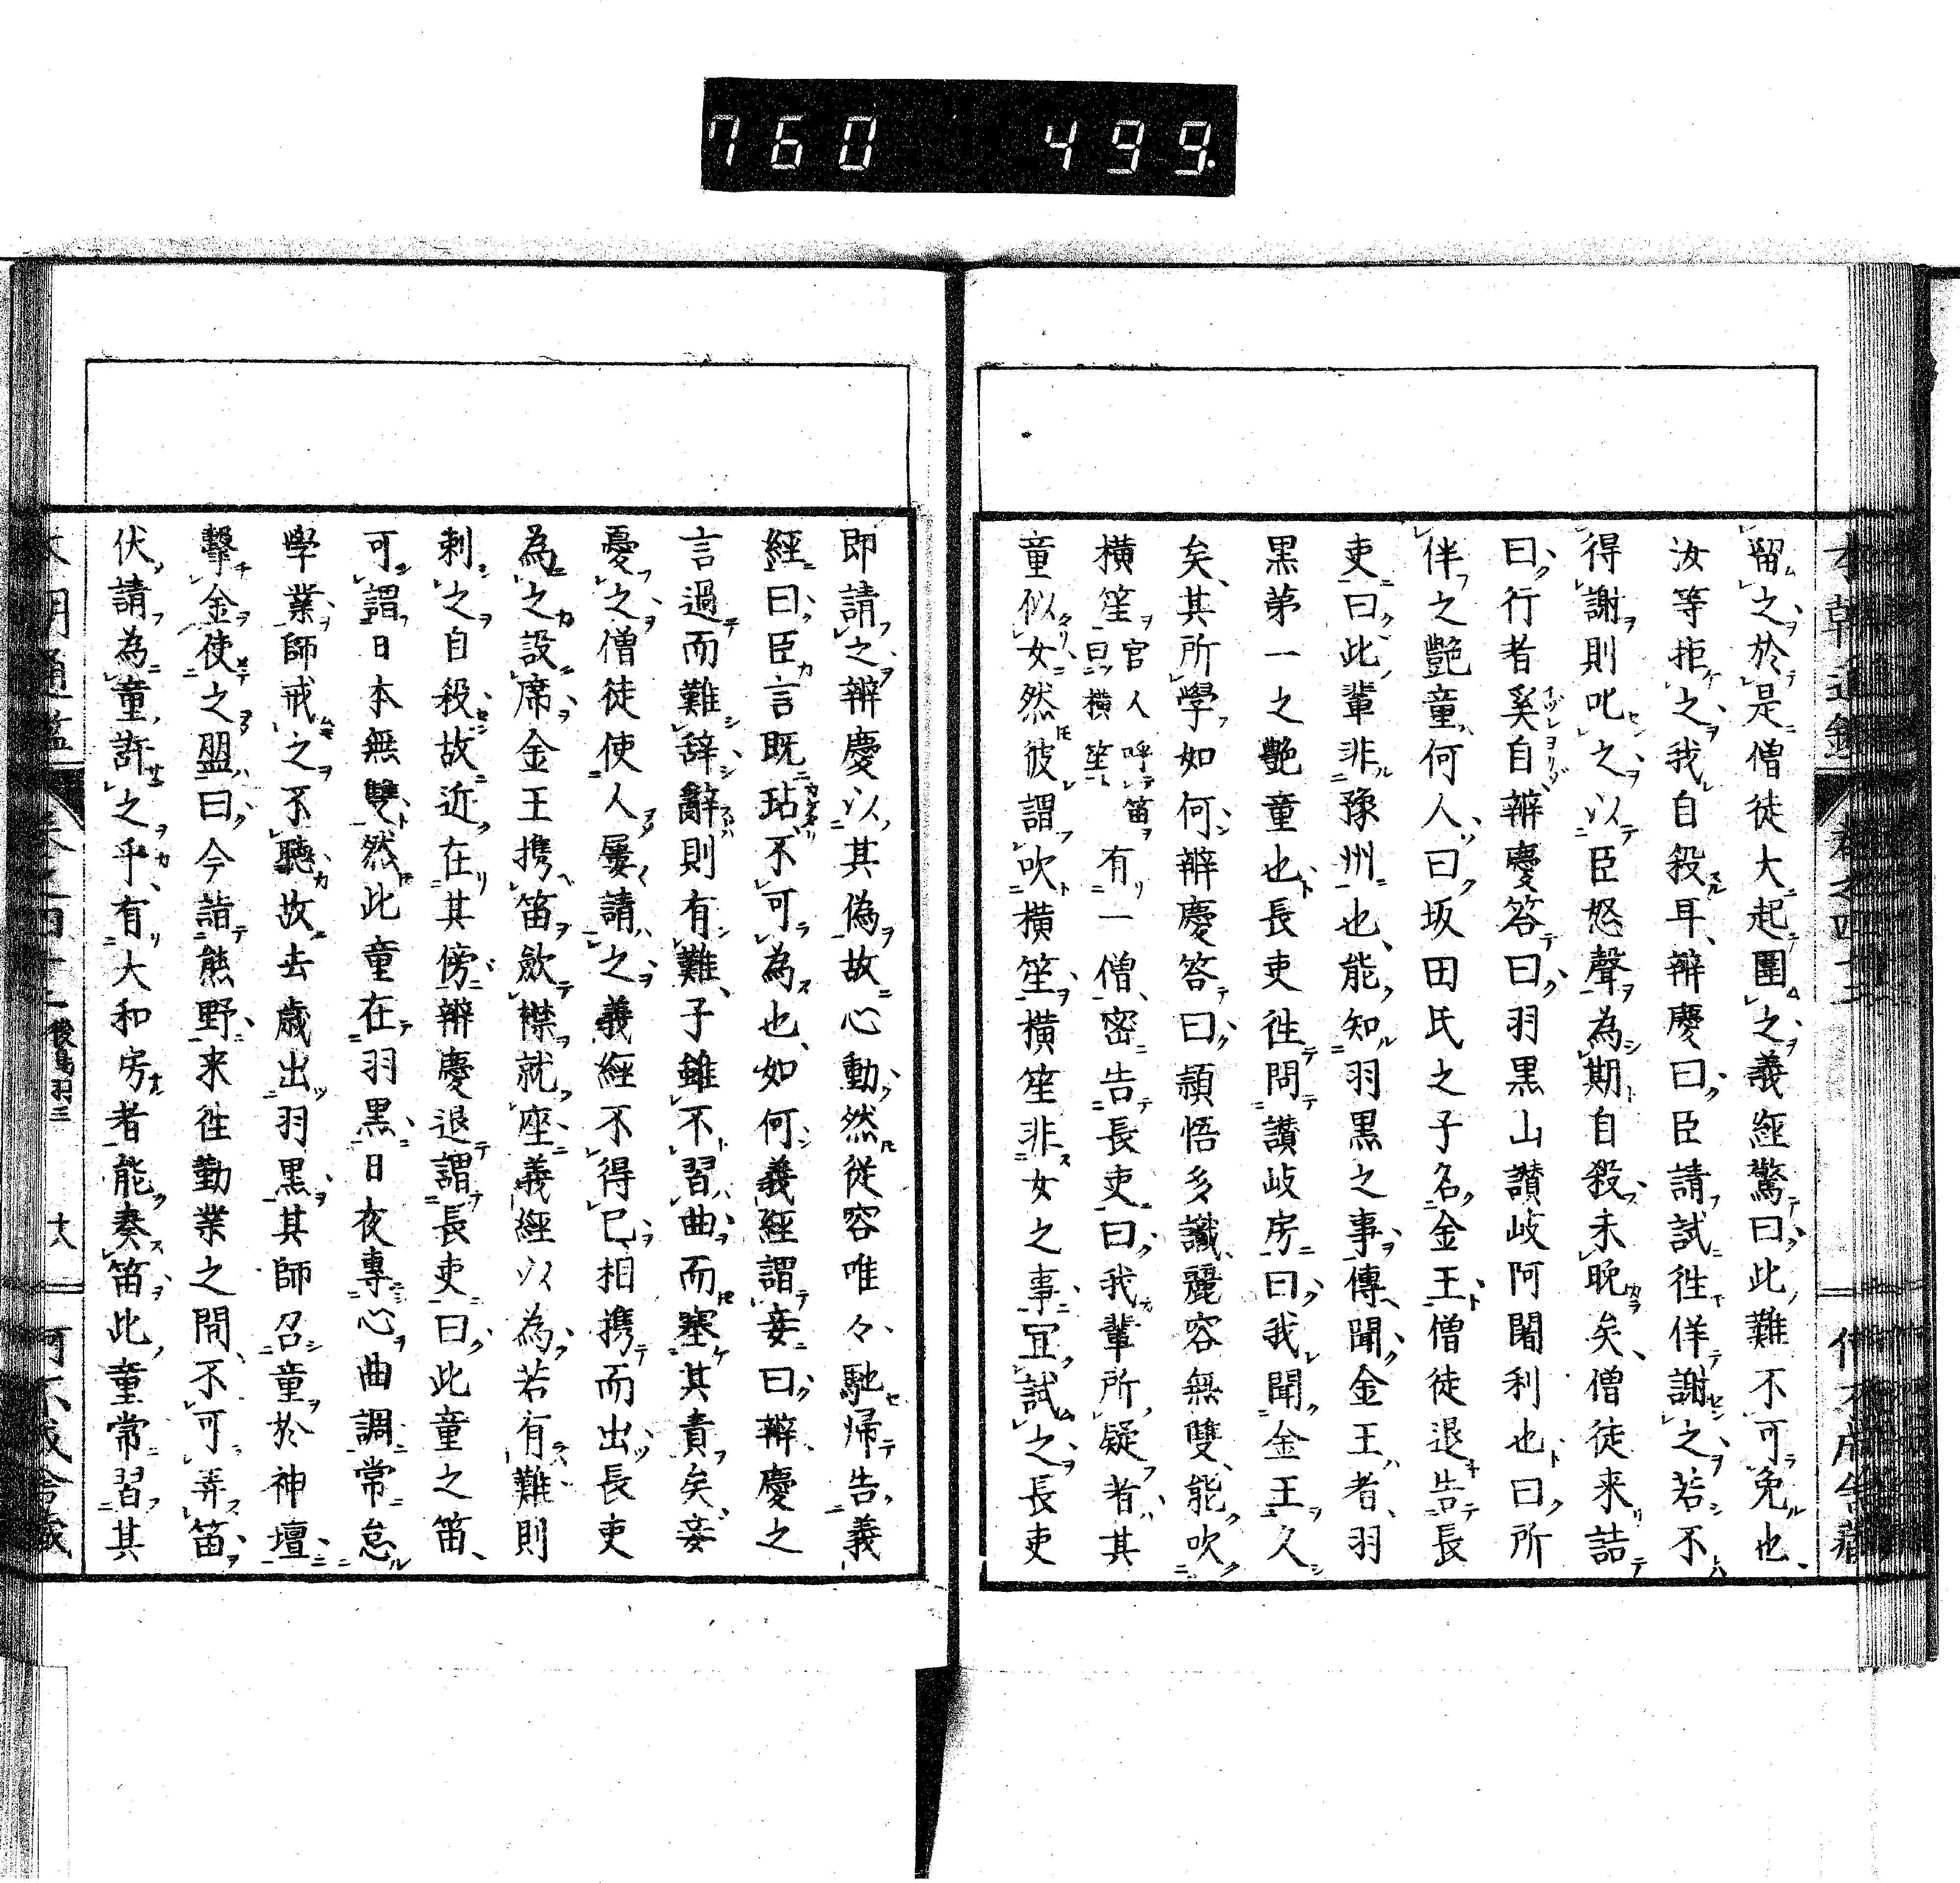 760 499.
留之於是僧徒大起圍之義經驚曰此難不可免也
汝等拒之我自殺耳辨慶曰臣請試往佯謝之若不
得謝則叱之以臣怒聲為期自殺未晚矣僧徒来詰
曰行者奚自辨慶答曰羽黒山讃岐阿闍利也曰所
伴之艷童何人曰坂田氏之子名金王僧徒退告長
吏曰此輩非豫州也能知羽黒之事傳聞金王者羽
黒第一之艷童也長吏往問讃岐房曰我聞金王久
矣其所學如何辨慶答曰頴悟多識麗容無雙能吹
橫笙官人呼笛曰橫笙有一僧密告長吏曰我輩所疑者其
童似女然彼謂吹橫笙橫笙非女之事宜試之長吏
即請之辨慶以其偽故心動然従容唯々馳帰告義
經曰臣言既玷不可為也如何義經謂妾曰辨慶之
言過而難辞辭則有難子雖不習曲而塞其責矣妾
憂之僧徒使人屢請之義經不得已相携而出長吏
為之設席金王携笛歛襟就座義經以為若有難則
刺之自殺故近在其傍辨慶退謂長吏曰此童之笛
可謂日本無雙然此童在羽黒日夜專心曲調常怠
學業師戒之不聽故去歳出羽黒其師召童於神壇
擊金使之盟曰今詣熊野来往勤業之間不可弄笛
伏請為童許之乎有大和房者能奏笛此童常習其
後鳥羽三